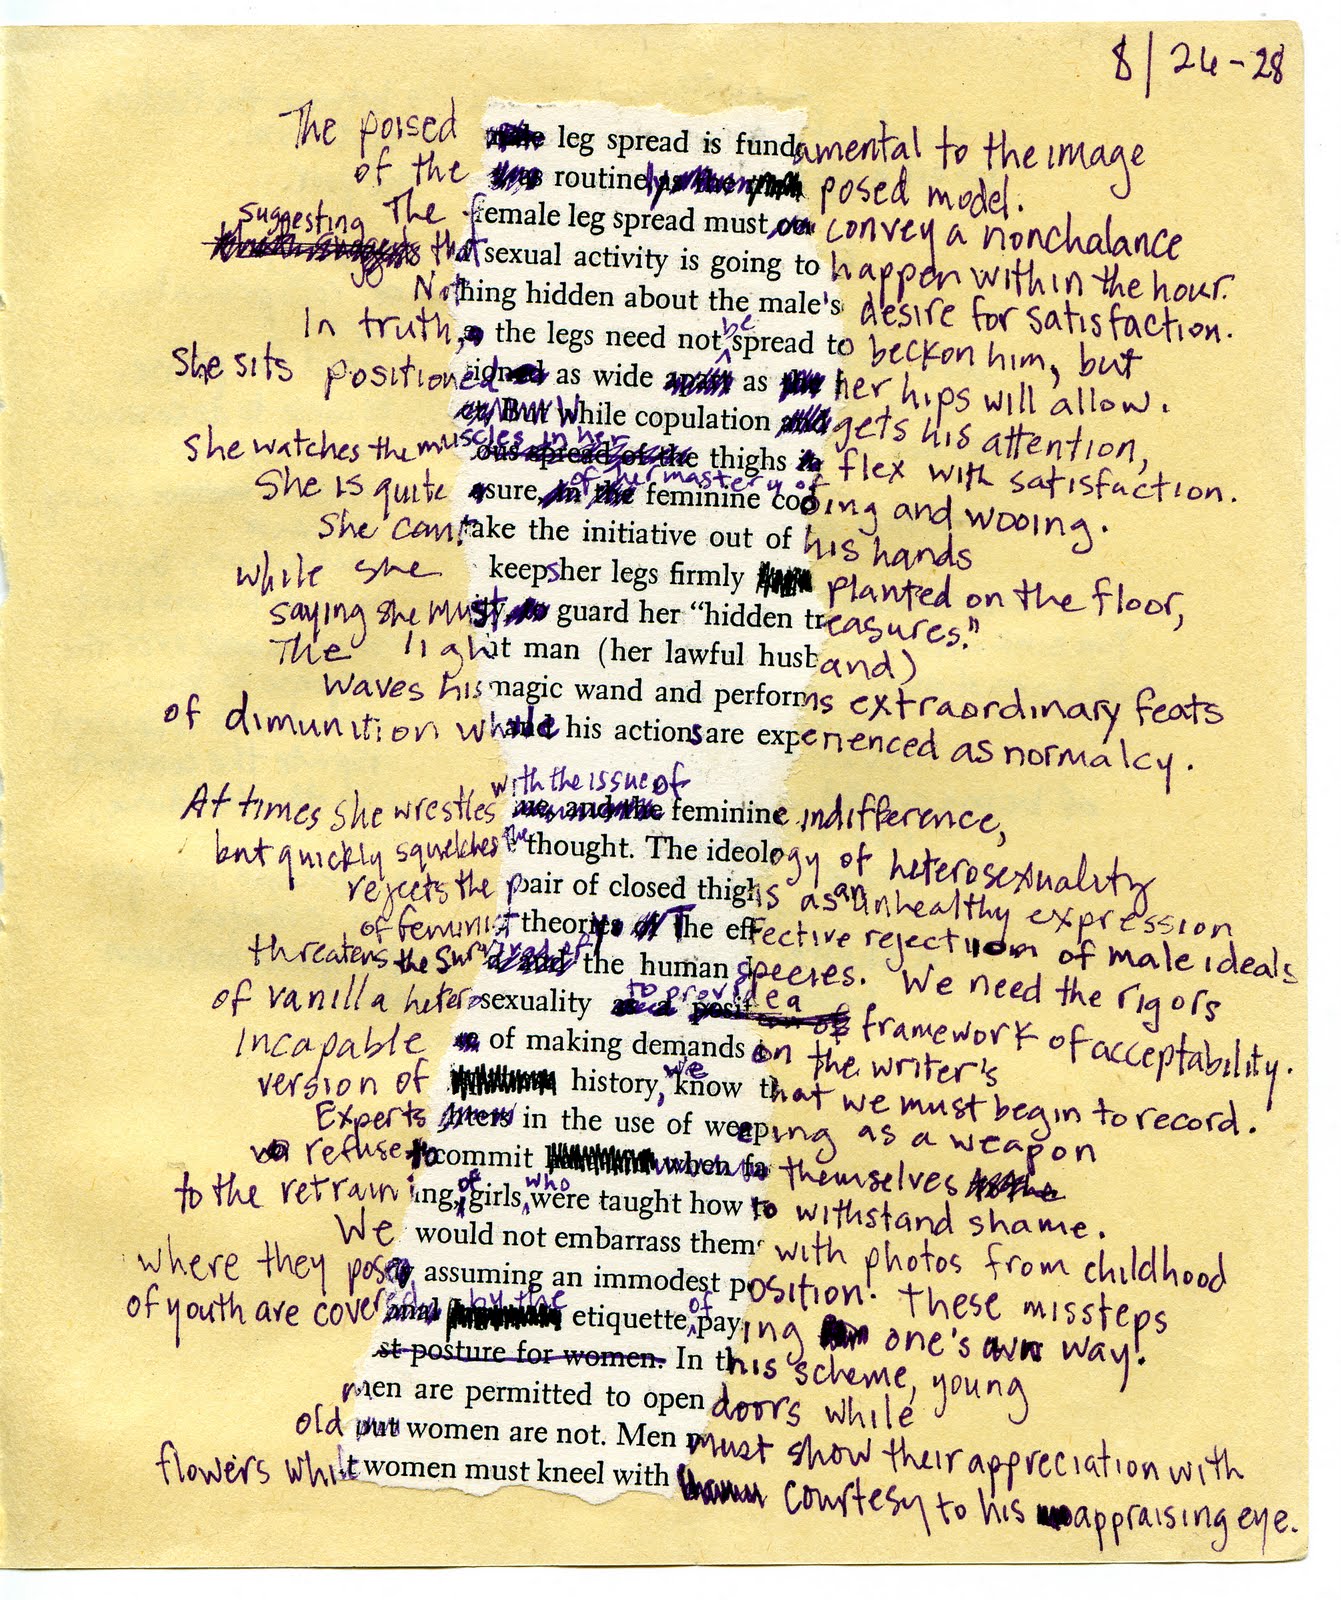 8/26-28
The poised leg spread is fundamental to the image
of the routinely posed model.
The female leg spread must convey a nonchalance
suggesting that sexual activity is going to happen within the hour.
Nothing hidden about the male's desire for satisfaction.
In truth, the legs need not be spread to beckon him, but
she sits positioned as wide as her hips will allow.
While copulation gets his attention,
She watches the muscles in her thighs flex with satisfaction.
She is quite sure of her mastery of feminine cooing and wooing.
She can take the initiative out of his hands
while she keeps her legs firmly planted on the floor,
saying she must guard her "hidden treasures."
The light man (her lawful husband)
waves his magic wand and performs extraordinary feats
of dimunition while his actions are experienced as normalcy.
At times she wrestles with the issue of feminine indifference,
but quickly squelches the thought. The ideology of heterosexuality
rejects the pair of closed thighs as an unhealthy expression
of feminist theory. The effective rejection of male ideals
threatens the survival of the human species. We need the rigors
of vanilla heterosexuality to provide a framework of acceptability.
Incapable of making demands on the writer's
version of history, we know that we must begin to record.
Experts in the use of weeping as a weapon
refuse to commit themselves
to the retraining of girls who were taught how to withstand shame.
We would not embarrass them with photos from childhood
where they posed assuming an immodest position. These missteps
of youth are covered by the etiquette of paying one's own way.
st posture for women. In this scheme, young
men are permitted to open doors while
old women are not. Men must show their appreciation with
flowers whilst women must kneel with courtesy to his appraising eye.